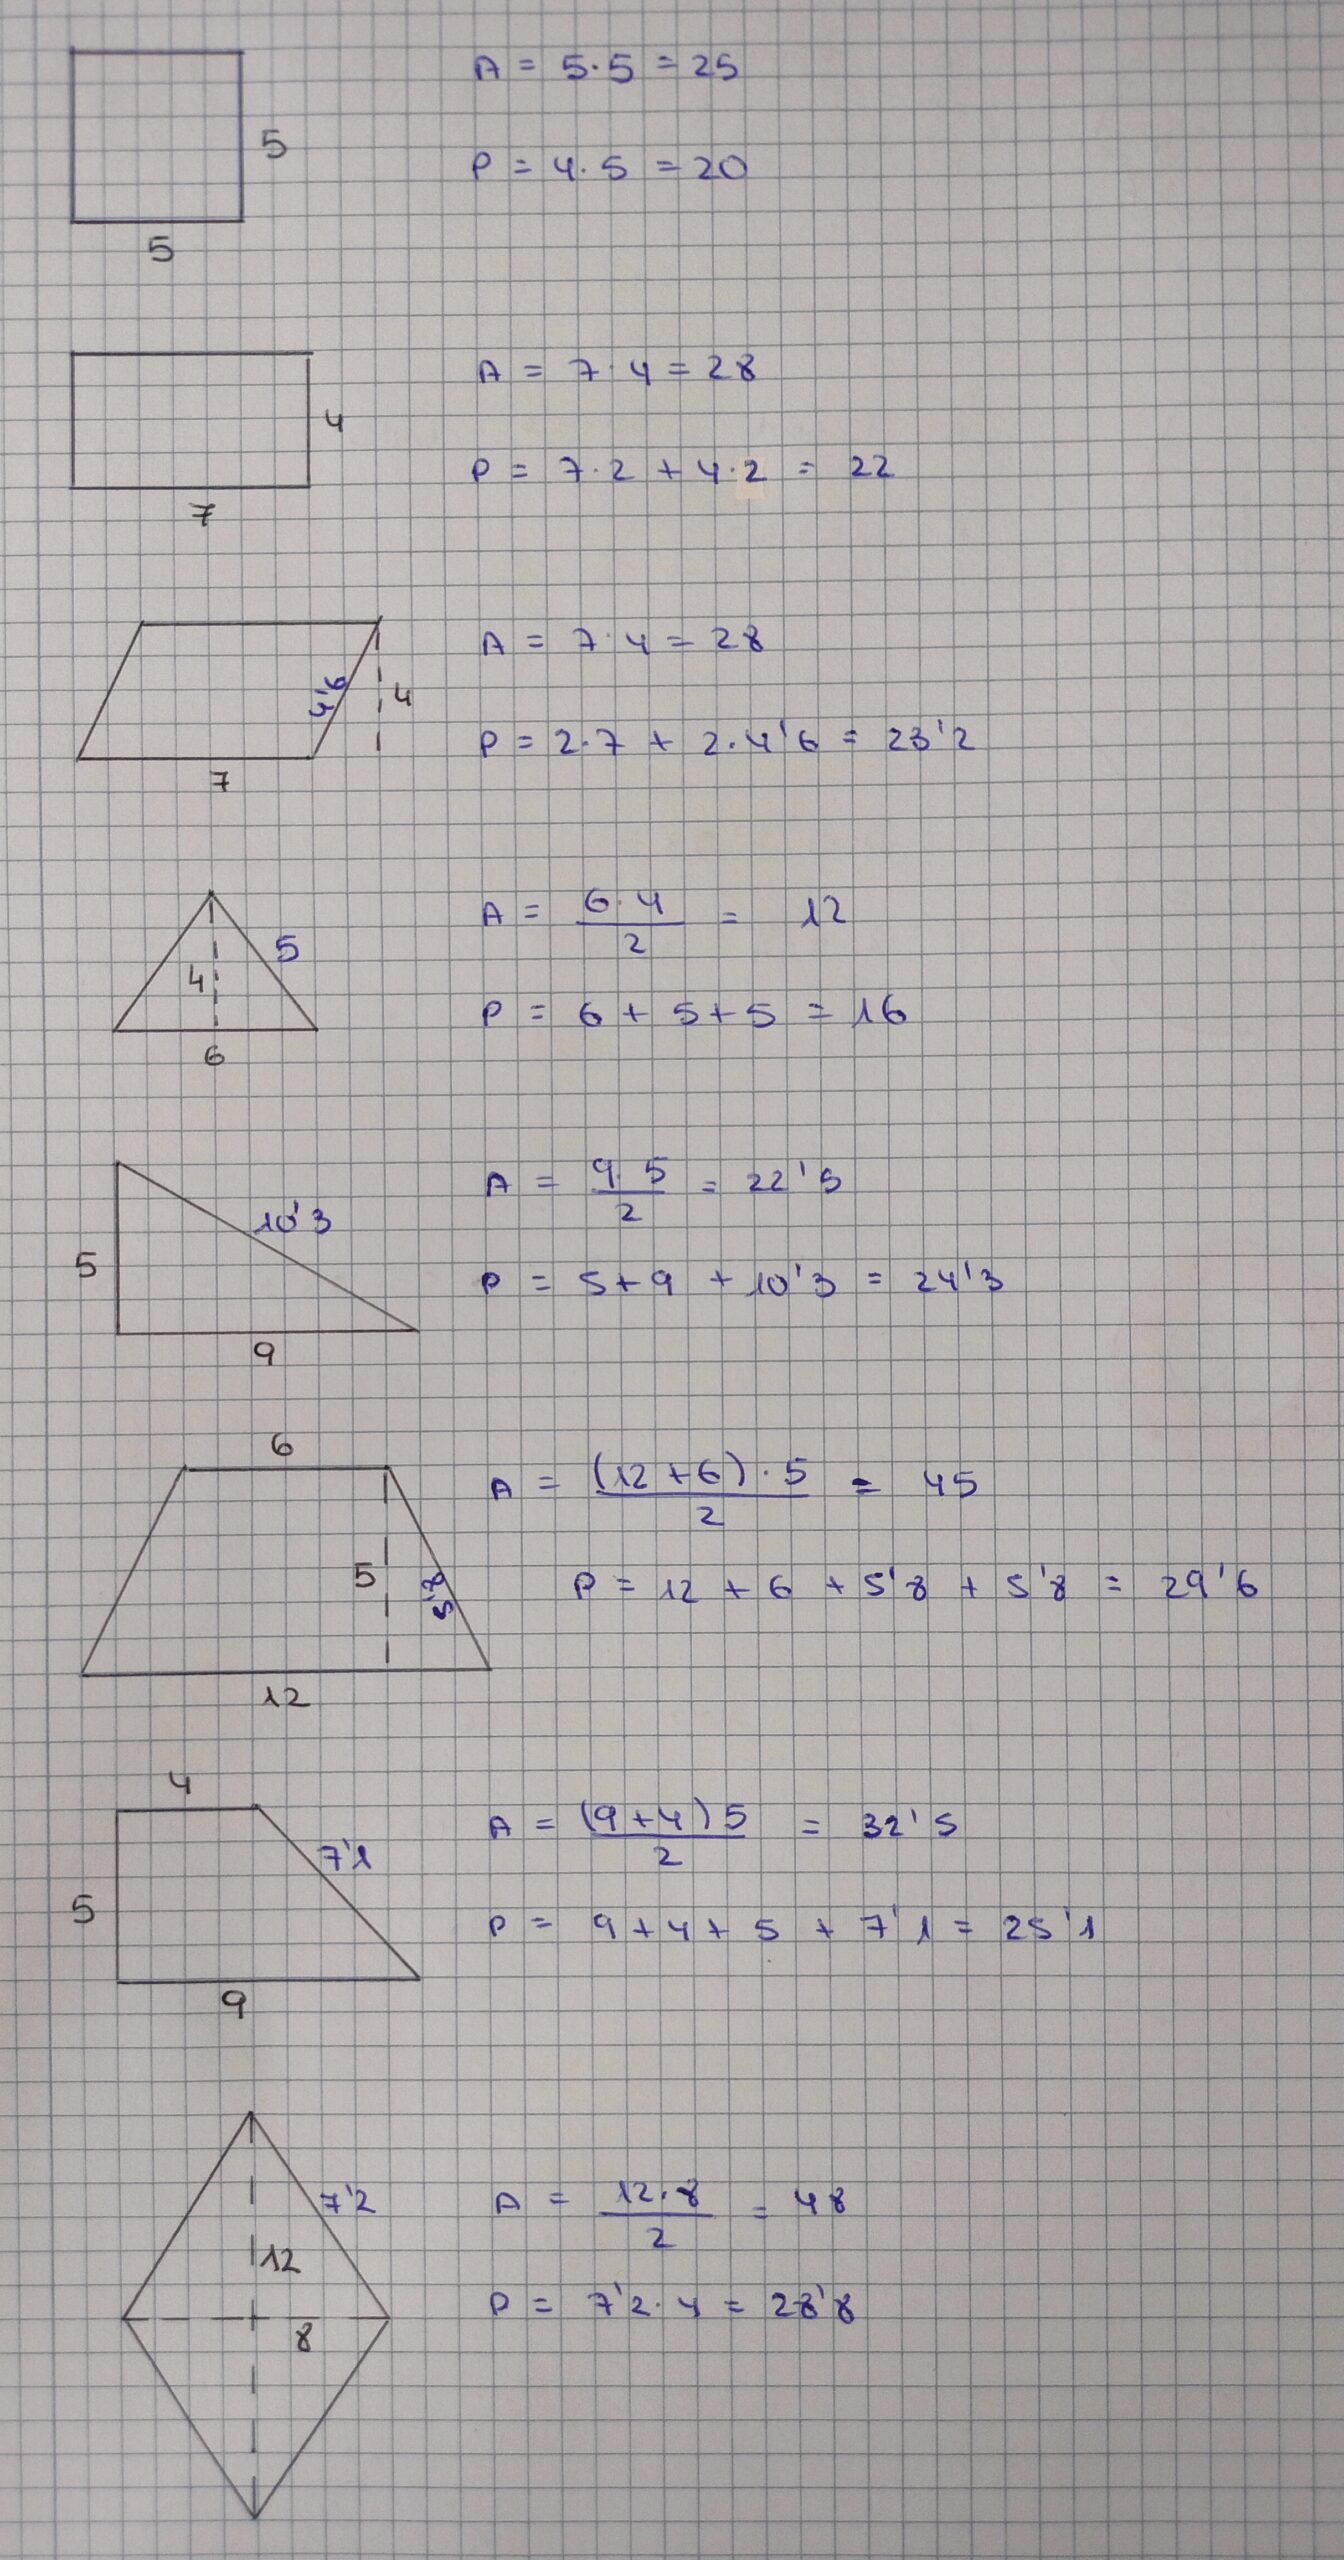 A = 5·5 = 25
5
P = 4·5 = 20
5
A = 7·4 = 28
4
P = 7·2 + 4·2 = 22
7
A = 7·4 = 28
4'6
4
P = 2·7 + 2·4'6 = 23'2
7
A = 6·4 / 2 = 12
5
4
P = 6 + 5 + 5 = 16
6
A = 9·5 / 2 = 22'5
10'3
5
P = 5 + 9 + 10'3 = 24'3
9
6
A = (12 + 6)·5 / 2 = 45
5
5'8
P = 12 + 6 + 5'8 + 5'8 = 29'6
12
4
A = (9 + 4) 5 / 2 = 32'5
7'1
5
P = 9 + 4 + 5 + 7'1 = 25'1
9
7'2
A = 12·8 / 2 = 48
12
P = 7'2·4 = 28'8
8